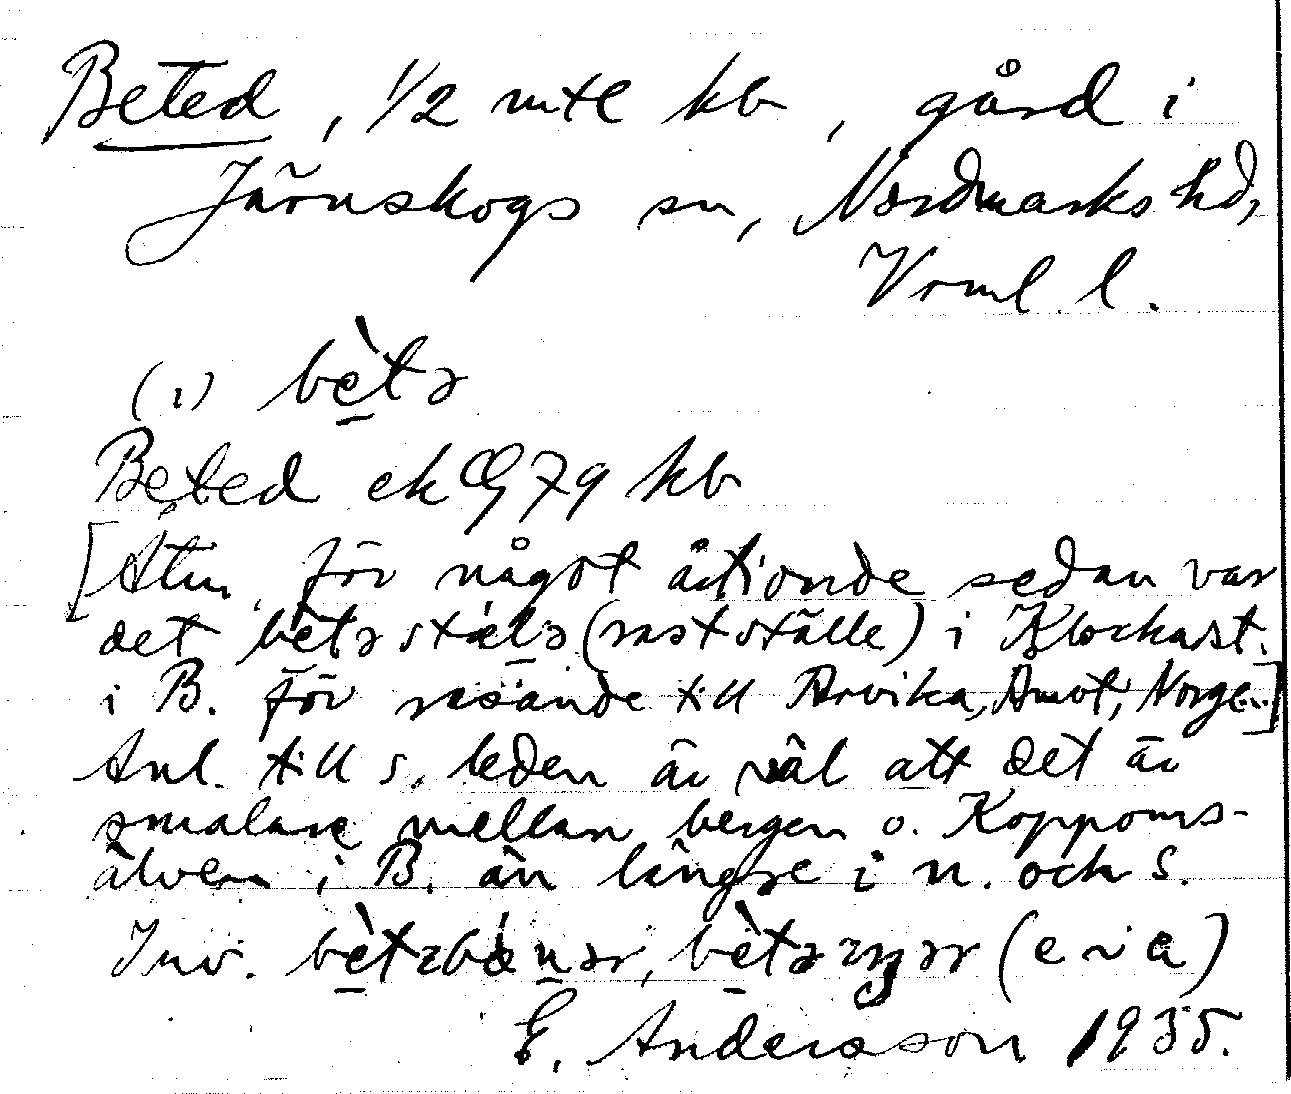 Beted, 1/2 mtl kb, gård i
Järnskogs sn, Nordmarks hd,
Vrml. l.
(i) bè̠tə
Beted ek G 79 kb
[Åtm. för något årtionde sedan var
det bètəstælə (rastställe) i Klockast.
i B. för resande till Arvika, Åmot, Norge.]
Anl. till s. leden är väl att det är
smalare mellan bergen o. Koppoms-
älven i B. än längre i n. och s.
Inv. bè̠təbó̠nər, (e via)
E. Andersson 1935.